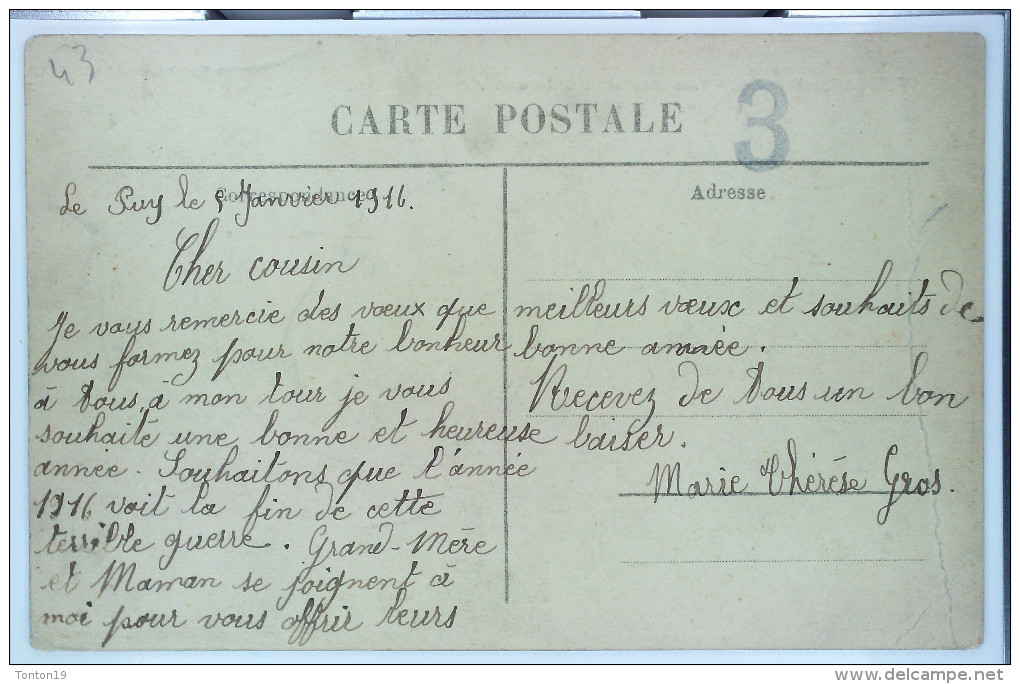 43
CARTE POSTALE
3
Correspondance
Adresse
Le Puy le 5 Janvier 1916.
Cher cousin
Je vous remercie des vœux que
vous formez pour notre bonheur
à tous, à mon tour je vous
souhaite une bonne et heureuse
année. Souhaitons que l'année
1916 voit la fin de cette
terrible guerre. Grand-Mère
et Maman se joignent à
moi pour vous offrir leurs
meilleurs vœux et souhaits de
bonne année.
Recevez de tous un bon
baiser.
Marie Thérèse Gros.
Tonton19
www.delcampe.net